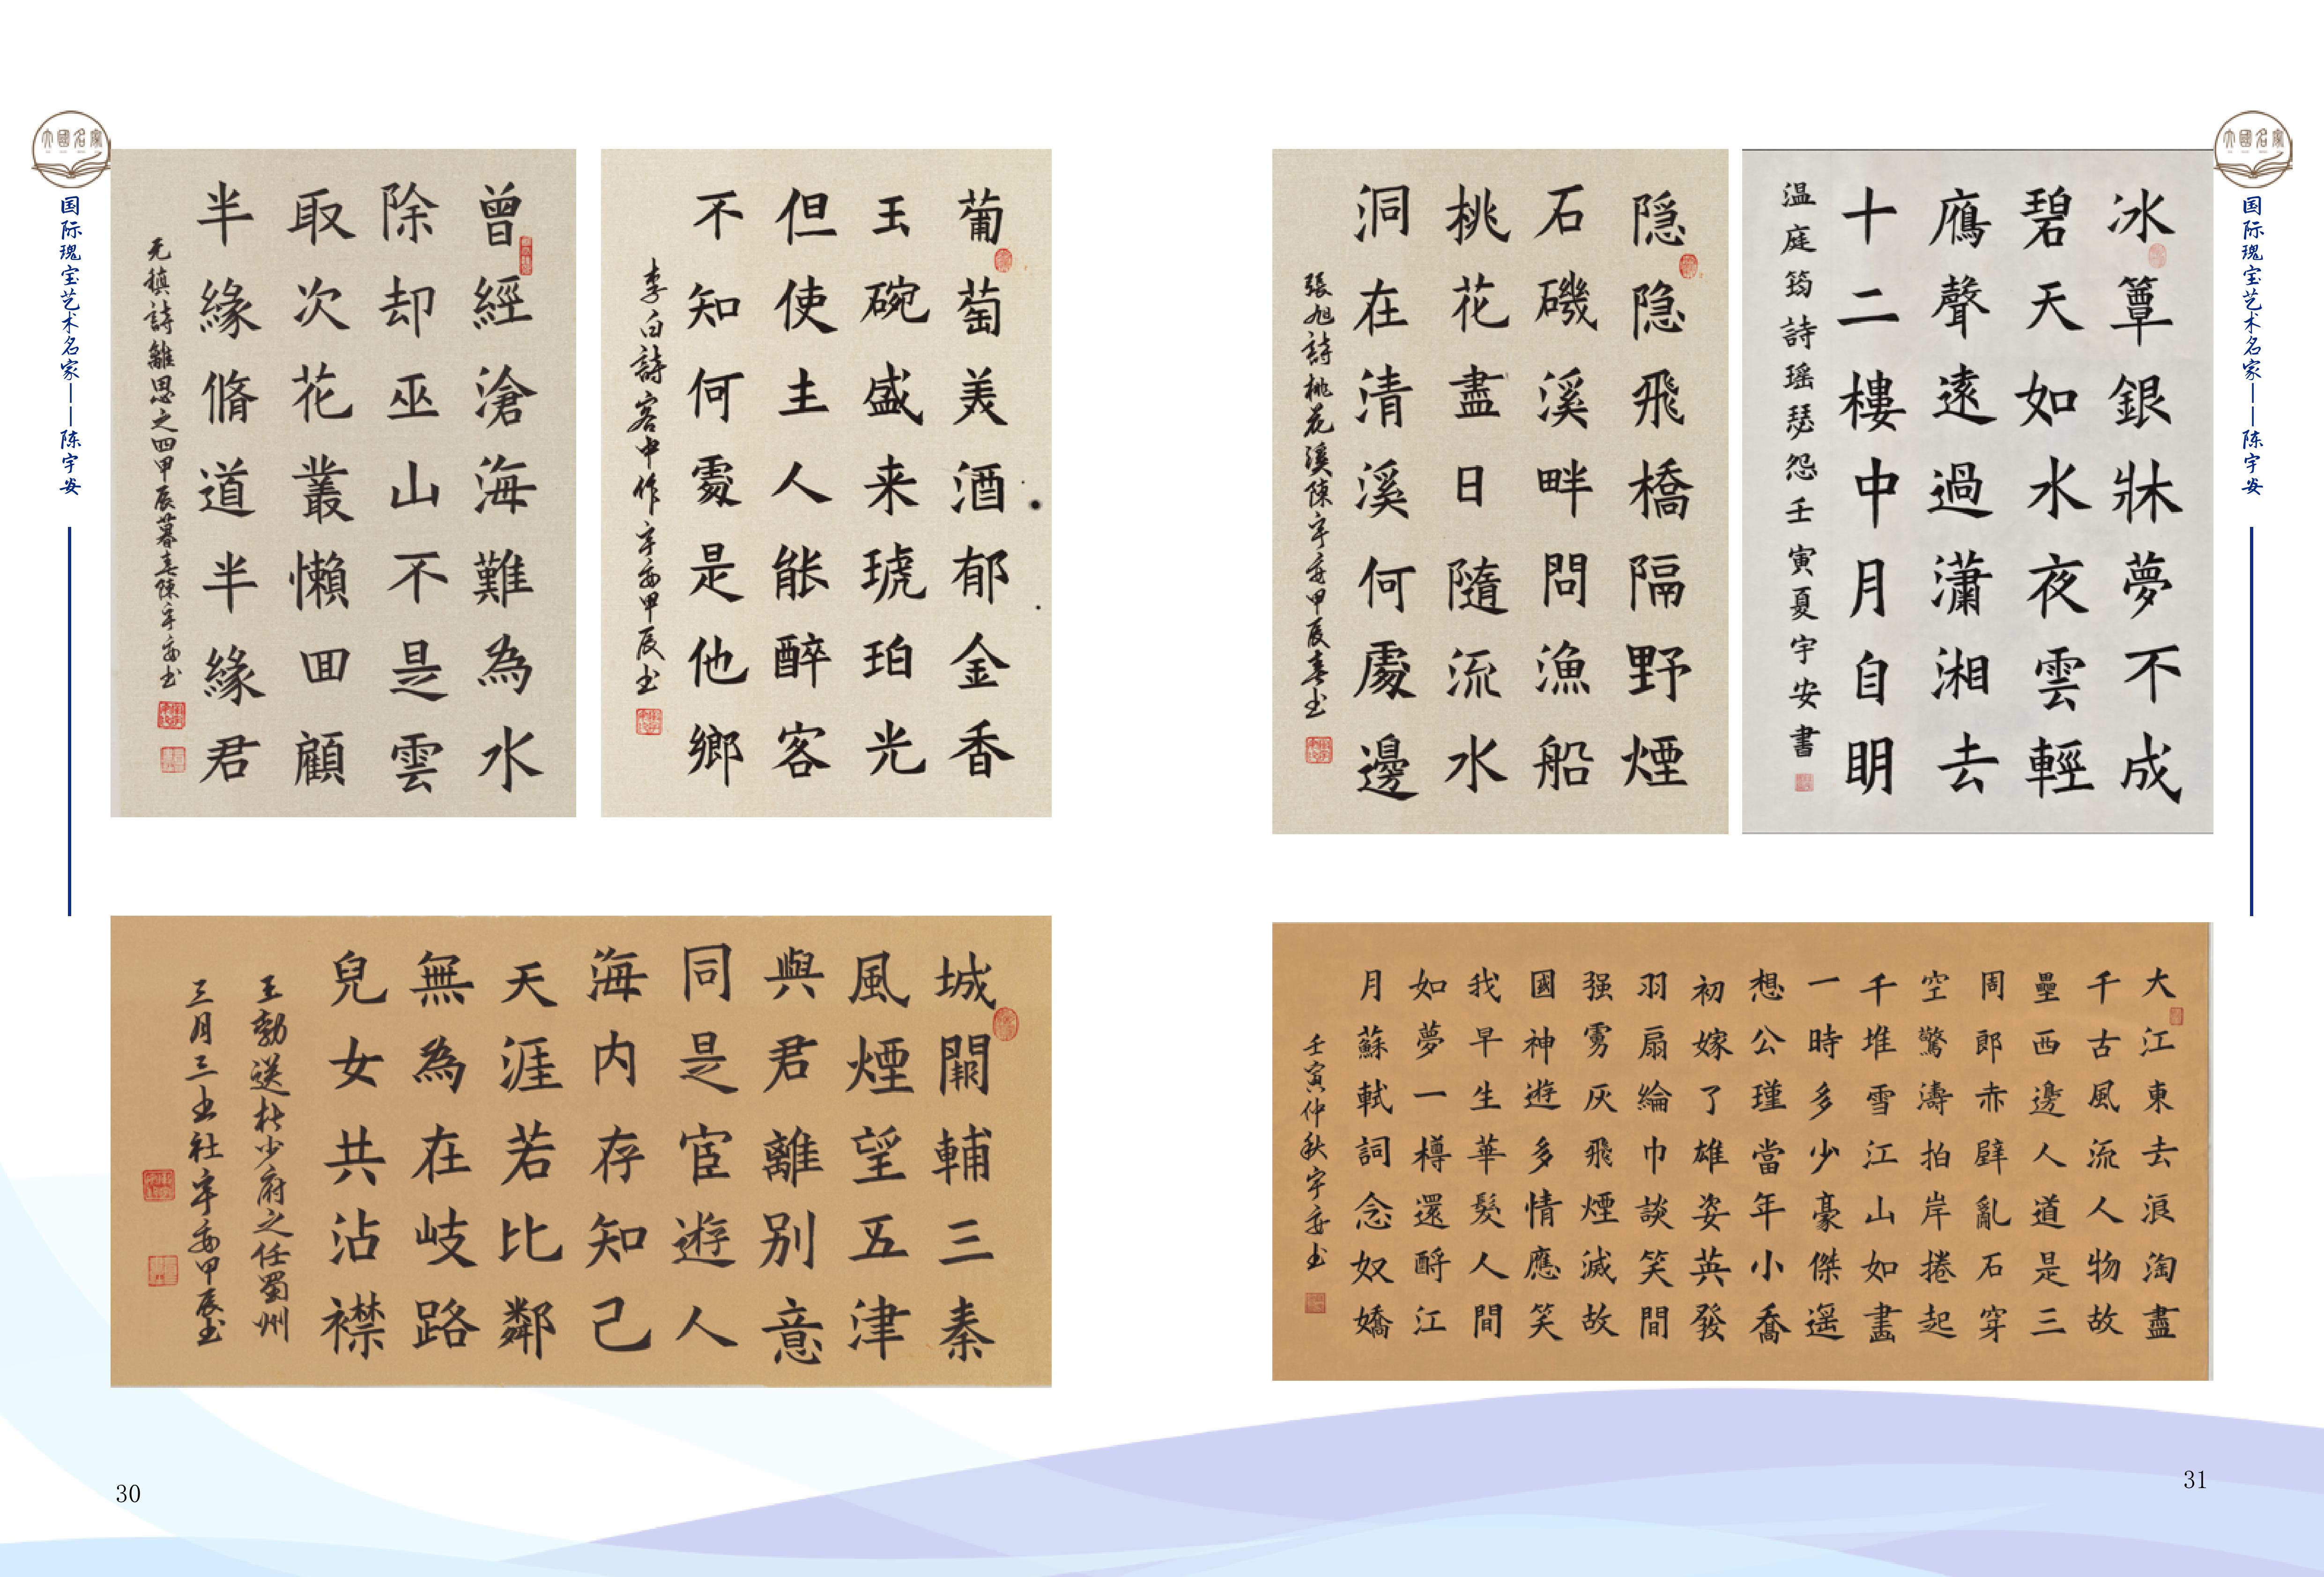 大國名家
国际瑰宝艺术名家——陈宇安
曾經滄海難為水
除却巫山不是雲
取次花叢懶回顧
半緣脩道半緣君
元稹詩離思之四甲辰暮春陳宇安书
葡萄美酒郁金香
玉碗盛来琥珀光
但使主人能醉客
不知何處是他鄉
李白詩客中作宇安甲辰书
城闕輔三秦
風煙望五津
與君離别意
同是宦遊人
海内存知己
天涯若比鄰
無為在岐路
兒女共沾襟
王勃送杜少府之任蜀州
三月三书社宇安甲辰书
30
大國名家
国际瑰宝艺术名家——陈宇安
冰簟銀牀夢不成
碧天如水夜雲輕
鴈聲遠過瀟湘去
十二樓中月自明
温庭筠詩瑶瑟怨壬寅夏宇安書
隐隐飛橋隔野煙
石磯溪畔問漁船
桃花盡日隨流水
洞在清溪何處邊
張旭詩桃花溪陳宇安甲辰春书
大江東去浪淘盡
千古風流人物故
壘西邊人道是三
周郎赤壁亂石穿
空驚濤拍岸捲起
千堆雪江山如畫
一時多少豪傑遥
想公瑾當年小喬
初嫁了雄姿英發
羽扇綸巾談笑間
强虜灰飛煙滅故
國神遊多情應笑
我早生華髮人間
如夢一樽還酹江
月蘇軾詞念奴嬌
壬寅仲秋宇安书
31